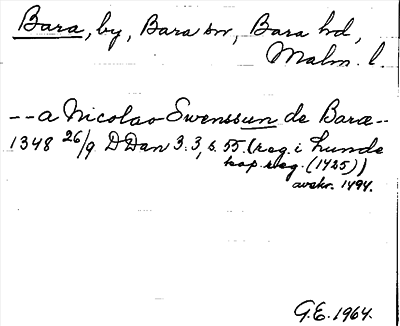 Bara, by, Bara sn, Bara hd,
Malm. l.
-- a Nicolao Swenssun de Baræ --
1348 26/9 DDan 3:3, s. 55. (reg. i Lunde
kap. reg. (1425))
avskr. 1494.
G.E. 1964.